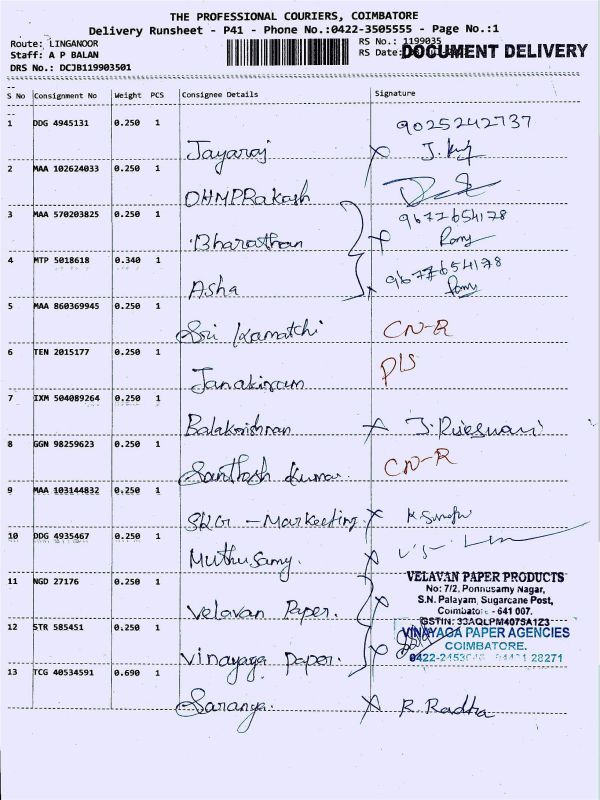 THE PROFESSIONAL COURIERS, COIMBATORE
Delivery Runsheet - P41 - Phone No.:0422-3505555 - Page No.:1
Route: LINGANOOR
RS No.: 1199035
Staff: A P BALAN
RS Date:
DOCUMENT DELIVERY
DRS No.: DCJB119903501
S No Consignment No Weight PCS Consignee Details Signature
1 DDG 4945131 0.250 1 Jayaraj 9025242737
2 MAA 102624033 0.250 1 OHMPRakash
3 MAA 570203825 0.250 1 Bharathan 9677654178
Romy
4 MTP 5018618 0.340 1 Asha 9677654178
Romy
5 MAA 860369945 0.250 1 Sri Kamatchi CN-R
6 TEN 2015177 0.250 1 Janakiram P/S
7 IXM 504089264 0.250 1 Balakrishnan
8 GGN 98259623 0.250 1 Santhosh Kumar. CN-R
9 MAA 103144832 0.250 1 SKG - Markeeting.
10 DDG 4935467 0.250 1 Muthusamy.
11 NGD 27176 0.250 1 Velavan Paper.
VELAVAN PAPER PRODUCTS
No: 7/2, Ponnusamy Nagar,
S.N. Palayam, Sugarcane Post,
Coimbatore - 641 007.
GSTIN: 33AQLPM4079A1Z3
12 STR 585451 0.250 1 Vinayaga Paper.
VINAYAGA PAPER AGENCIES
COIMBATORE.
0422-2453 28271
13 TCG 40534591 0.690 1 Saranya. R. Radha